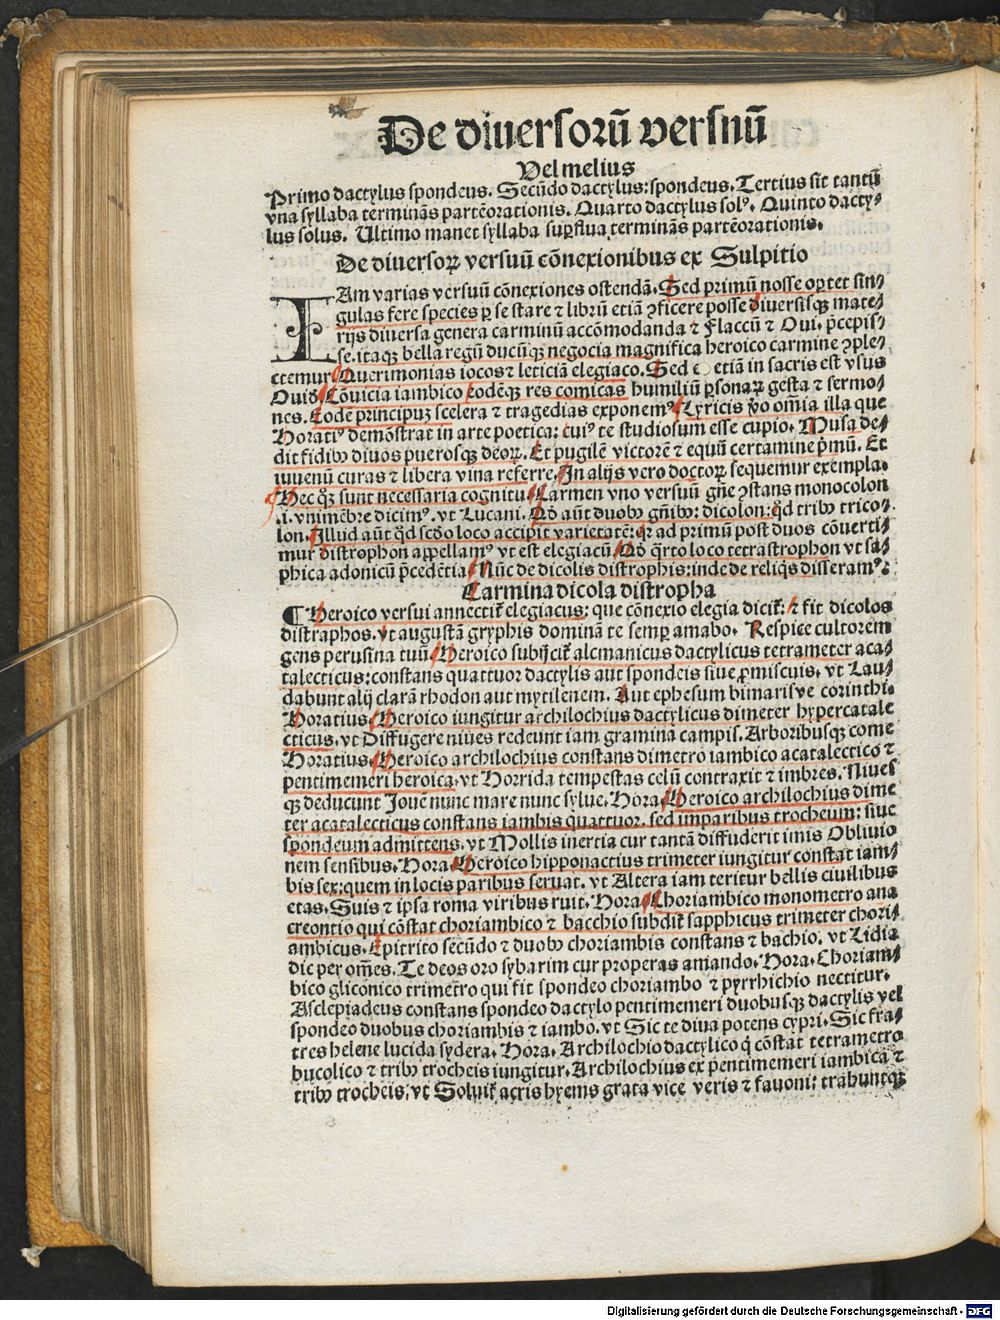 De diuersorū versuū
Vel melius
Primo dactylus spondeus. Secūdo dactylus: spondeus. Tertius sit tantū
vna syllaba terminās partēorationis. Quarto dactylus solꝰ. Quinto dacty⸗
lus solus. Ultimo manet syllaba suꝑflua terminās partēorationis.
De diuersoꝝ versuū cōnexionibus ex Sulpitio
IAm varias versuū cōnexiones ostendā. Sed primū nosse oꝑtet sin⸗
gulas fere species ꝑ se stare ⁊ librū etiā ꝯficere posse diuersisqꝫ mate⸗
rijs diuersa genera carminū accōmodanda ⁊ Flaccū ⁊ Oui. p̄cepis⸗
se. itaqꝫ bella regū ducūqꝫ negocia magnifica heroico carmine ꝯple⸗
ctemur Querimonias iocos ⁊ leticiā elegiaco. Sed ⁊ etiā in sacris est vsus
Ouid Cōuicia iambico eodēqꝫ res comicas humiliū ꝑsonaꝝ gesta ⁊ sermo⸗
nes. Eodē principuꝫ scelera ⁊ tragedias exponemꝰ Lyricis ꝟo om̄ia illa que
Horatiꝰ demōstrat in arte poetica: cuiꝰ te studiosum esse cupio. Musa de⸗
dit fidibꝰ diuos puerosqꝫ deoꝝ. Et pugilē victorē ⁊ equū certamine p̄mū. Et
iuuenū curas ⁊ libera vina referre. In alijs vero doctoꝝ sequemur exempla.
Hec qꝫ sunt necessaria cognitu Carmen vno versuū gn̄e ꝯstans monocolon
.i. vnimēbre dicimꝰ. vt Lucani. Qđ aūt duobꝰ gn̄ibꝰ: dicolon: qđ tribꝰ trico⸗
lon. Illud aūt qđ scd̄o loco accipit varietatē: qꝛ ad primū post duos cōuerti⸗
mur distrophon appellamꝰ vt est elegiacū Qđ q̄rto loco tetrastrophon vt sa⸗
phica adonicū p̄cedētia Nūc de dicolis distrophis: inde de reliqs disseramꝰ:
Carmina dicola distropha
¶ Heroico versui annectit̄ elegiacus: que cōnexio elegia dicit̄: ⁊ fit dicolos
distraphos. vt augustā gryphis dominā te semꝑ amabo. Respice cultorem
gens perusina tuū Heroico subijcit̄ alcmanicus dactylicus tetrameter aca⸗
talecticus: constans quattuor dactylis aut spondeis siue ꝑmiscuis. vt Lau⸗
dabunt alij clarā rhodon aut mytilenem. Aut ephesum bimarisve corinthi.
Horatius Heroico iungitur archilochius dactylicus dimeter hypercatale
cticus. vt Diffugere niues redeunt iam gramina campis. Arboribusqꝫ come
Horatius Heroico archilochius constans dimetro iambico acatalectico ⁊
pentimemeri heroica. vt Horrida tempestas celū contraxit ⁊ imbres. Niues
qꝫ deducunt Jouē nunc mare nunc sylue. Hora Heroico archilochius dime
ter acatalecticus constans iambis quattuor. sed imparibus trocheum: siue
spondeum admittens. vt Mollis inertia cur tantā diffuderit imis Obliuio
nem sensibus. Hora Heroico hipponactius trimeter iungitur constat iam⸗
bis sex: quem in locis paribus seruat. vt Altera iam teritur bellis ciuilibus
etas. Suis ⁊ ipsa roma viribus ruit. Hora Choriambico monometro ana
creontio qui cōstat choriambico ⁊ bacchio subdit̄ sapphicus trimeter chori⸗
ambicus. Epitrito secūdo ⁊ duobꝰ choriambis constans ⁊ bachio. vt Lidia
dic per om̄es. Te deos oro sybarim cur properas amando. Hora. Choriam⸗
bico gliconico trimetro qui fit spondeo choriambo ⁊ pyrrhichio nectitur.
Asclepiadeus constans spondeo dactylo pentimemeri duobusqꝫ dactylis vel
spondeo duobus choriambis ⁊ iambo. vt Sic te diua potens cypri. Sic fra⸗
tres helene lucida sydera. Hora. Archilochio dactylico q̄ cōstat tetrametro
bucolico ⁊ tribꝰ trocheis iungitur. Archilochius ex pentimemeri iambica ⁊
tribꝰ trocheis, vt Soluit̄ acris hyems grata vice veris ⁊ fauoni: trahuntqꝫ
Digitalisierung gefördert durch die Deutsche Forschungsgemeinschaft - DFG